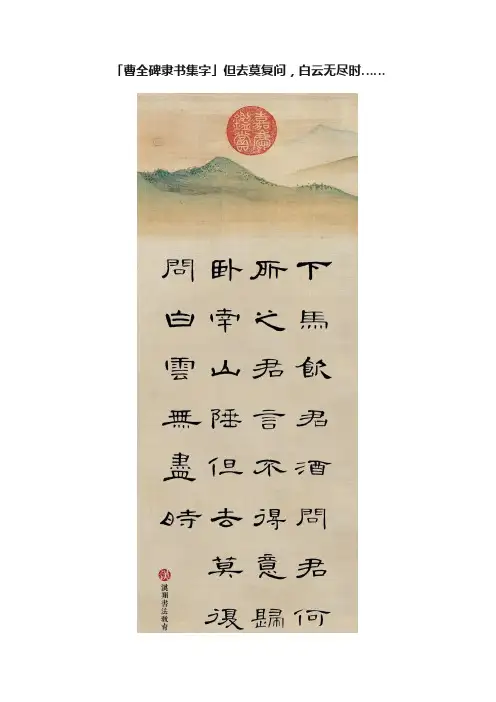 「曹全碑隶书集字」但去莫复问，白云无尽时……
嘉慶
鑑賞
下馬飲君酒問君何
所之君言不得意歸
卧南山陲但去莫復
問白雲無盡時
漢翔書法教育